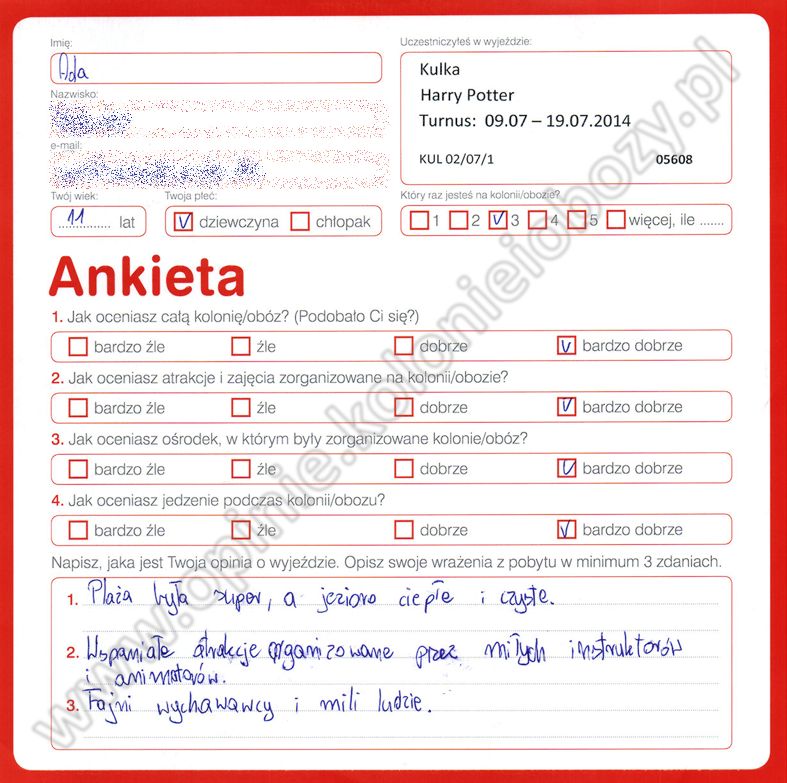 Imię:
Ada
Nazwisko:
e-mail:
Twój wiek:
11 lat
Twoja płeć:
V dziewczyna chłopak
Uczestniczyłeś w wyjeździe:
Kulka
Harry Potter
Turnus: 09.07 – 19.07.2014
KUL 02/07/1 05608
Który raz jesteś na kolonii/obozie?
1 2 V 3 4 5 więcej, ile .......
Ankieta
1. Jak oceniasz całą kolonię/obóz? (Podobało Ci się?)
bardzo źle źle dobrze V bardzo dobrze
2. Jak oceniasz atrakcje i zajęcia zorganizowane na kolonii/obozie?
bardzo źle źle dobrze V bardzo dobrze
3. Jak oceniasz ośrodek, w którym były zorganizowane kolonie/obóz?
bardzo źle źle dobrze V bardzo dobrze
4. Jak oceniasz jedzenie podczas kolonii/obozu?
bardzo źle źle dobrze V bardzo dobrze
Napisz, jaka jest Twoja opinia o wyjeździe. Opisz swoje wrażenia z pobytu w minimum 3 zdaniach.
1. Plaża była super, a jezioro ciepłe i czyste.
2. Wspaniałe atrakcje organizowane przez miłych instruktorów
i animatorów.
3. Fajni wychawawcy i mili ludzie.
www.opinie.kolonieiobozy.pl